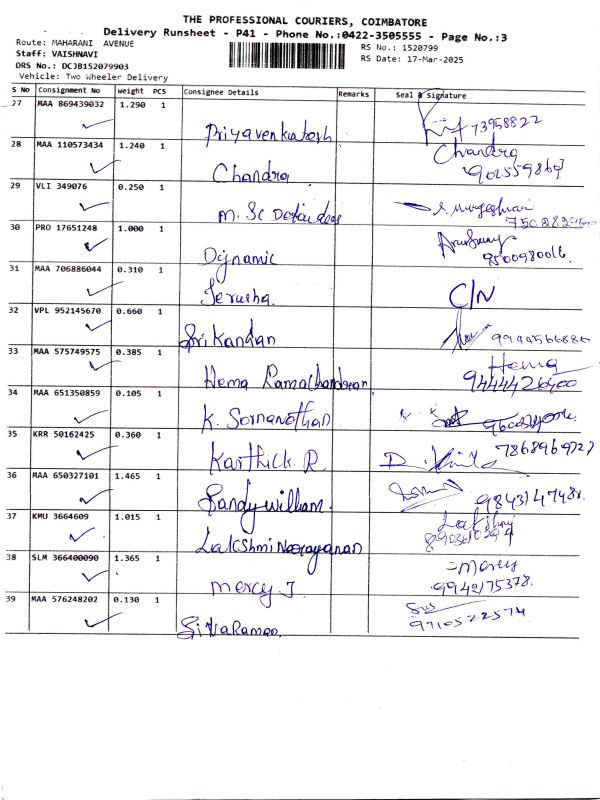 THE PROFESSIONAL COURIERS, COIMBATORE
Delivery Runsheet - P41 - Phone No.:0422-3505555 - Page No.:3
Route: MAHARANI AVENUE
Staff: VAISHNAVI
DRS No.: DCJB152079903
Vehicle: Two Wheeler Delivery
RS No.: 1520799
RS Date: 17-Mar-2025
S No Consignment No Weight PCS Consignee Details Remarks Seal & Signature
27 MAA 869439032 1.290 1 Priyavenkatesh
28 MAA 110573434 1.240 1 Chandra Chandra
29 VLI 349076 0.250 1 M. Sc
30 PRO 17651248 1.000 1 Dynamic 9500980016.
31 MAA 706886044 0.310 1 Jerusha. C/N
32 VPL 952145670 0.660 1 Sri Kandan 9944566886
33 MAA 575749575 0.385 1 Hema Ramachandran Hema 9444426400
34 MAA 651350859 0.105 1 K.
35 KRR 50162425 0.360 1 Karthick. R. 7868969727
36 MAA 650327101 1.465 1 Sandy william.
37 KMU 3664609 1.015 1 Lakshmi Narayanan Lakshmi
38 SLM 366400090 1.365 1 Mercy J Mercy 9942175378.
39 MAA 576248202 0.130 1 SivaRaman. 9710522574